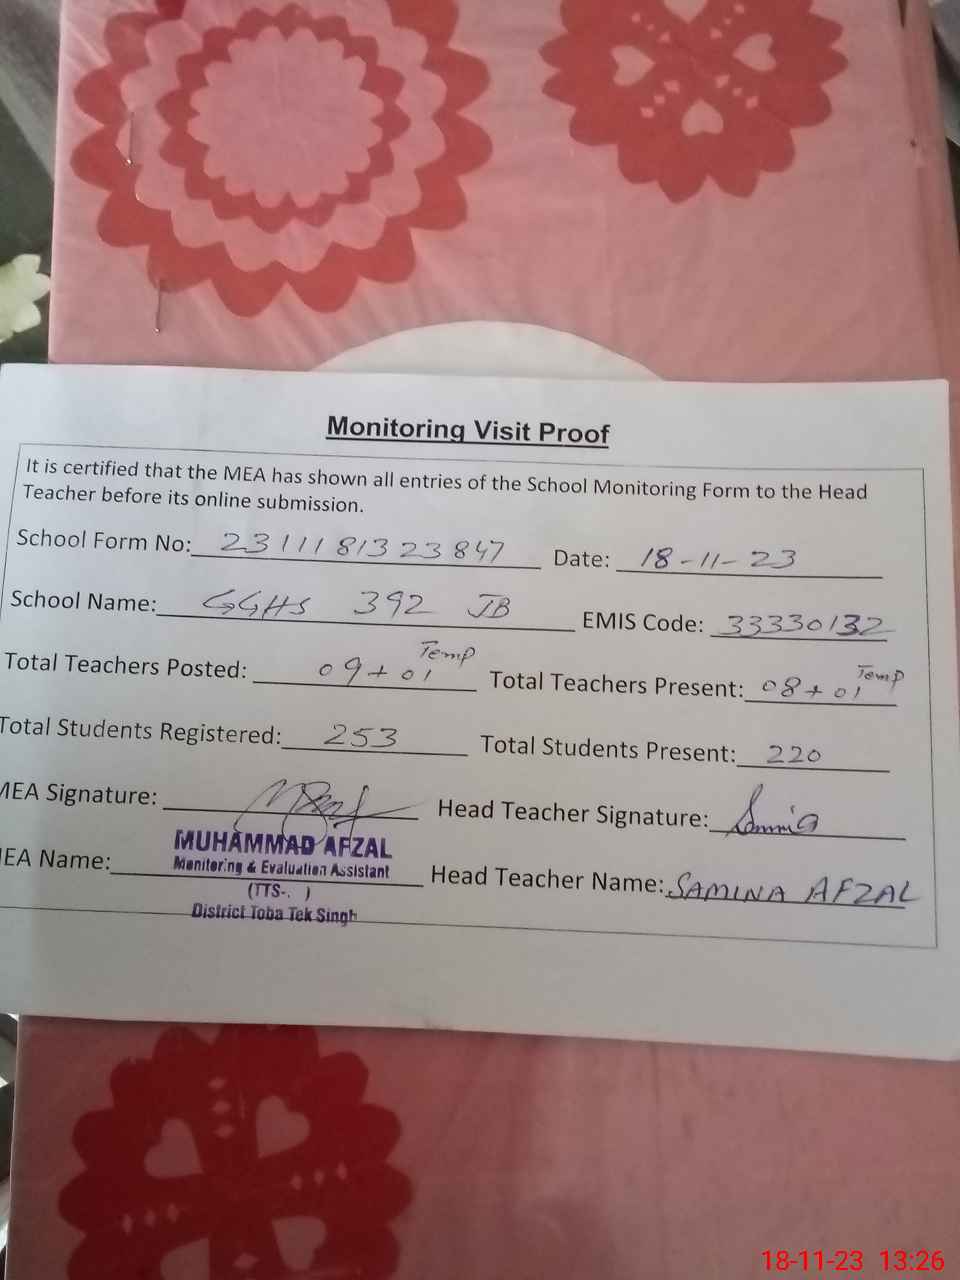 Monitoring Visit Proof
It is certified that the MEA has shown all entries of the School Monitoring Form to the Head
Teacher before its online submission.
School Form No: 23111181323847 Date: 18-11-23
School Name: GGHS 392 JB EMIS Code: 33330132
Total Teachers Posted: 09+01 Temp Total Teachers Present: 08+01 Temp
Total Students Registered: 253 Total Students Present: 220
MEA Signature: Head Teacher Signature: Samina
MEA Name: MUHAMMAD AFZAL Head Teacher Name: SAMINA AFZAL
Monitoring & Evaluation Assistant
(TTS-. )
District Toba Tek Singh
18-11-23 13:26